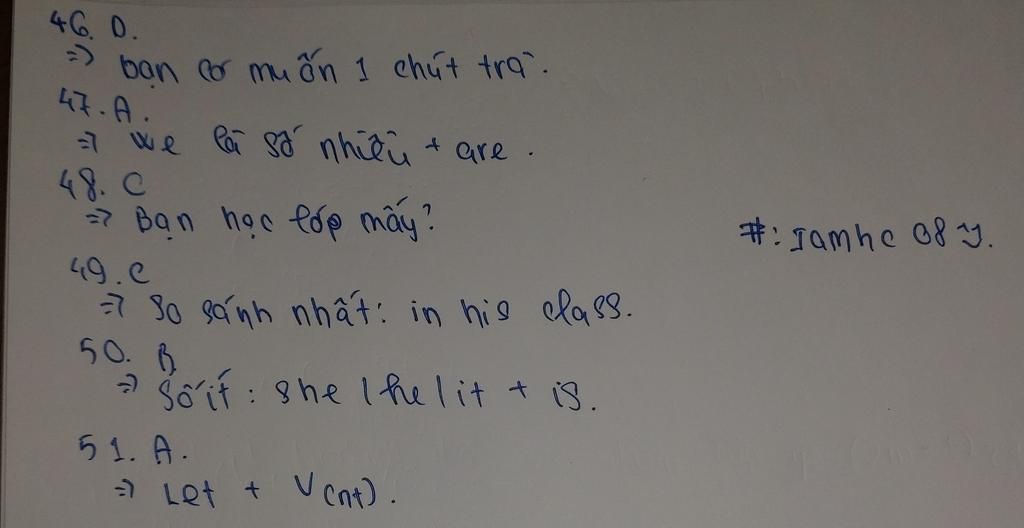 46. D.
=> bạn có muốn 1 chút trà.
47. A.
=> we là số nhiều + are.
48. C
=> Bạn học lớp mấy?
#: Iamhc 08
49. C
=> So sánh nhất: in his class.
50. B
=> Số ít: she / he / it + is.
51. A.
=> Let + V(nt).